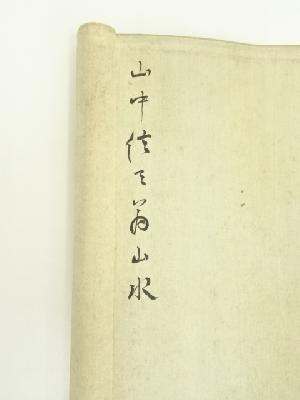 山中信天翁山水